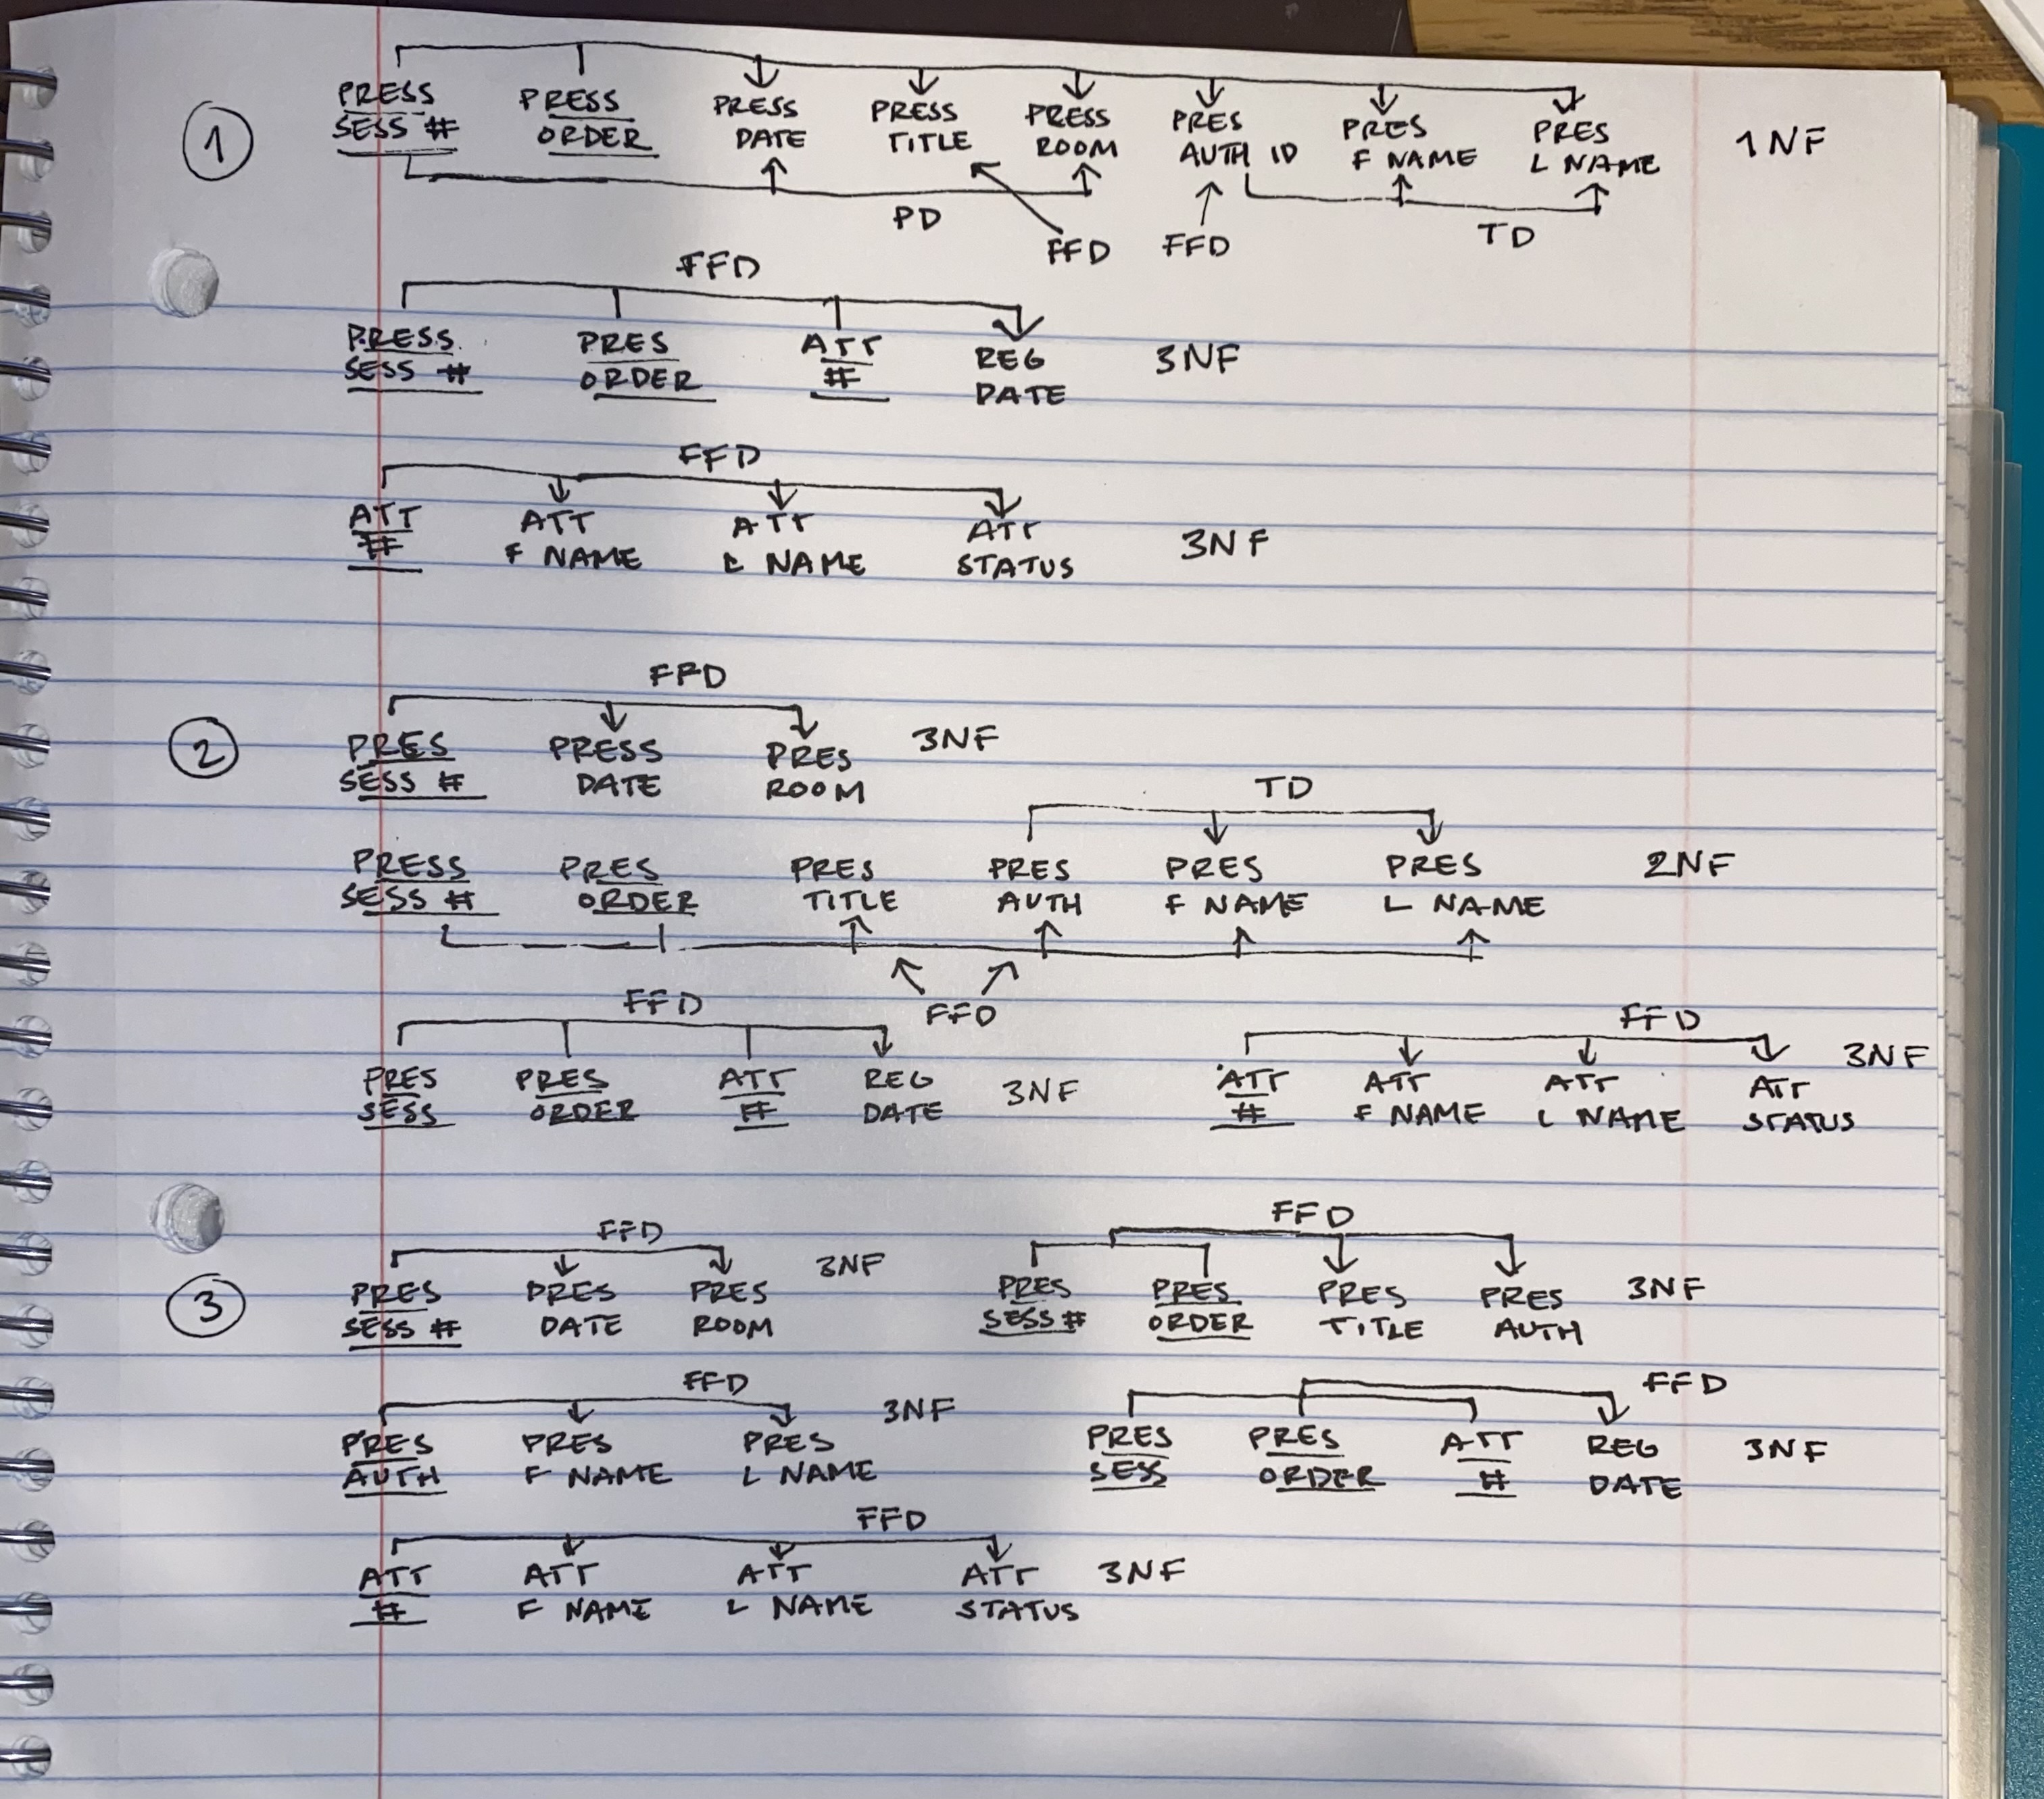 ①
PRESS PRESS PRESS PRESS PRESS PRES PRES PRES 1NF
SESS # ORDER DATE TITLE ROOM AUTH ID F NAME L NAME
PD FFD FFD TD
FFD
PRESS PRES ATT REG 3NF
SESS # ORDER # DATE
FFD
ATT ATT ATT ATT 3NF
# F NAME L NAME STATUS
FFD
②
PRES PRESS PRES 3NF
SESS # DATE ROOM
TD
PRESS PRES PRES PRES PRES PRES 2NF
SESS # ORDER TITLE AUTH F NAME L NAME
FFD
FFD FFD
PRES PRES ATT REG 3NF ATT ATT ATT ATT 3NF
SESS ORDER # DATE # F NAME L NAME STATUS
FFD FFD
③
PRES PRES PRES 3NF PRES PRES PRES PRES 3NF
SESS # DATE ROOM SESS # ORDER TITLE AUTH
FFD FFD
PRES PRES PRES 3NF PRES PRES ATT REG 3NF
AUTH F NAME L NAME SESS ORDER # DATE
FFD
ATT ATT ATT ATT 3NF
# F NAME L NAME STATUS